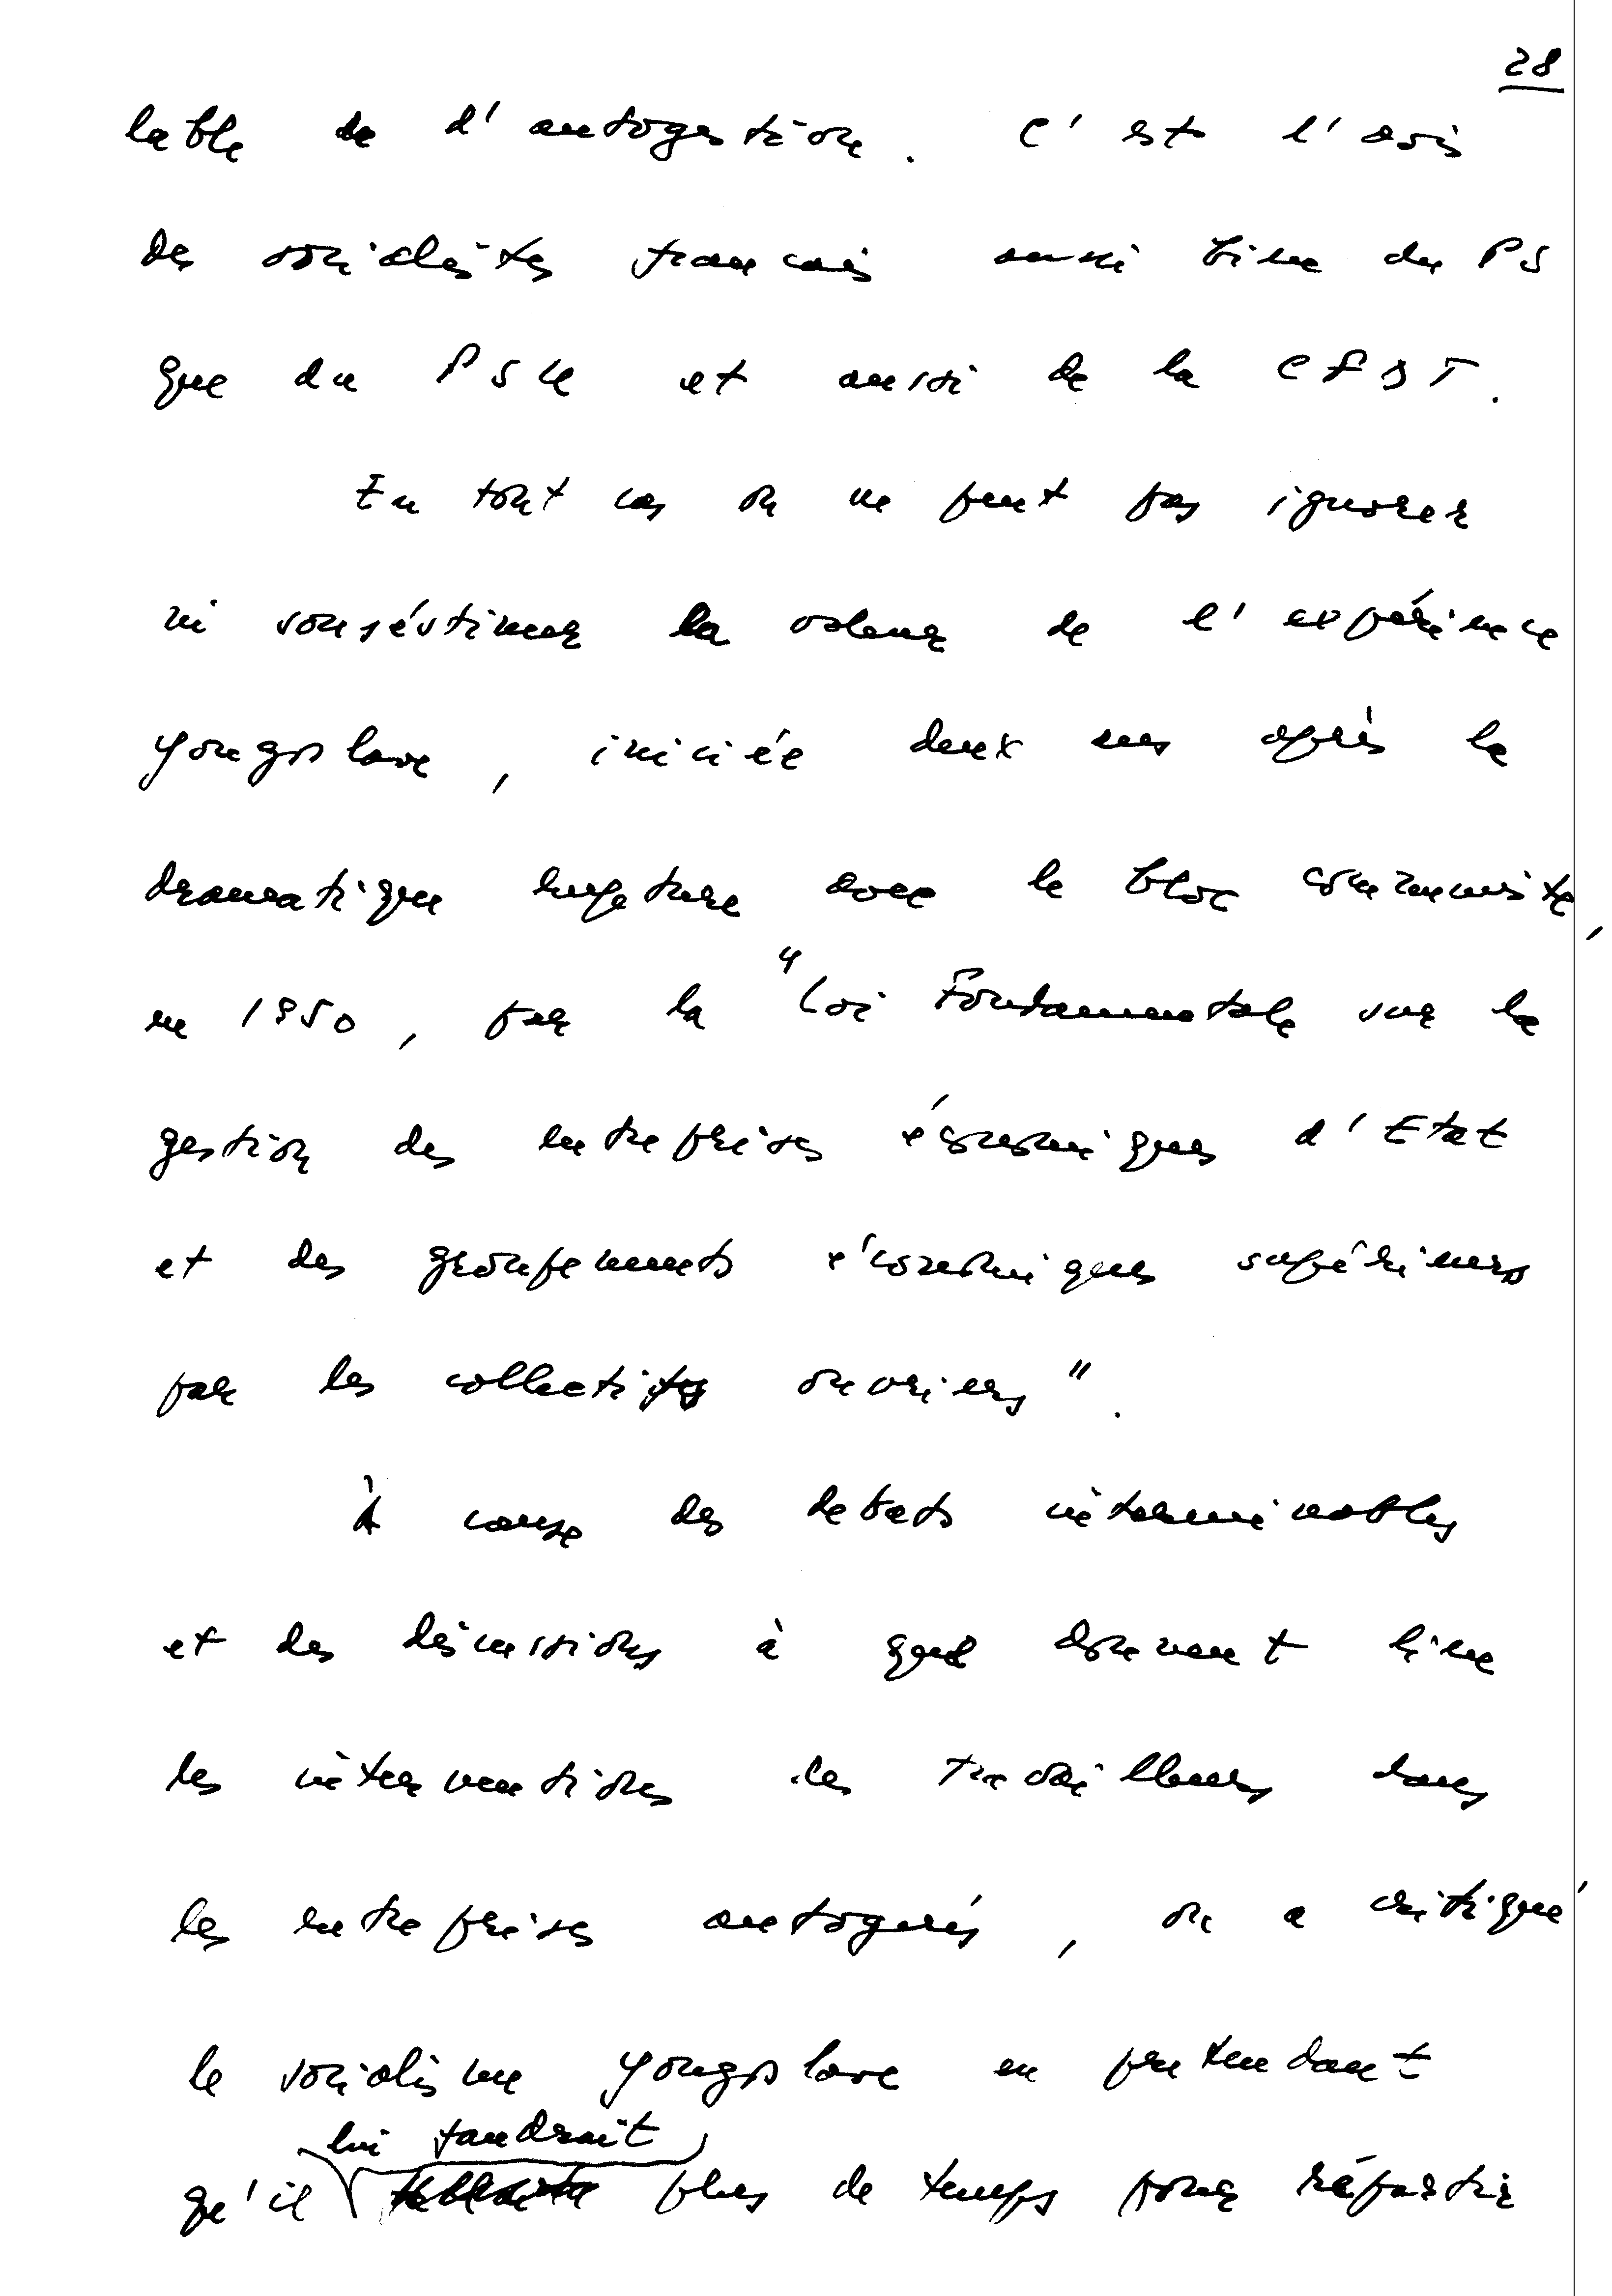 28
lable de d'autogestion. C'est l'avis
des socialistes francais aussi bien du PS
que du PSU et aussi de la CFDT.
En tout cas on ne peut pas ignorer
ni souséstimer la valeur de l'expérience
yougoslave, iniciée deux ans après la
dramatique rupture avec le bloc communiste,
en 1950, par la "Loi Fondamentale sur la
gestion des entreprises économiques d'Etat
et des groupements économiques supérieurs
par les collectifs ouvriers".
À cause des debats interminables
et des discussions à quel donnent lieu
les interventions des travailleurs dans
les entreprises autogerés, on a critiqué
le socialisme yougoslave en pretendant
lui faudrait
qu'il plus de temps pour répartir